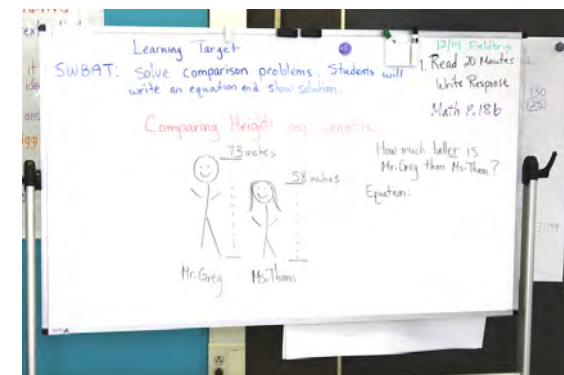 Learning Target
SWBAT: Solve comparison problems. Students will
write an equation and show solution.
12/14 Fieldtrip
1. Read 20 Minutes
Write Response
Math P.186
Comparing Heights
73 inches
58 inches
Mr. Greg
Ms. Tham
How much taller is
Mr. Greg than Ms. Tham?
Equation:
130